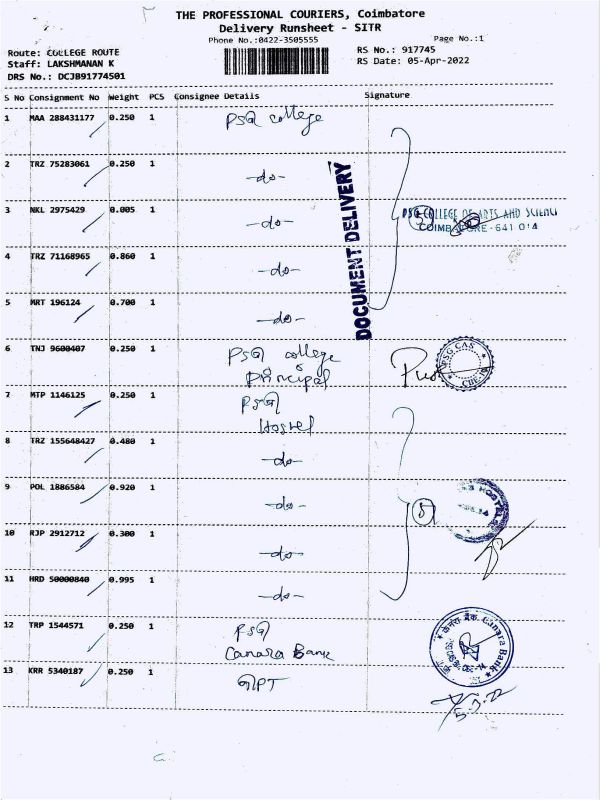 THE PROFESSIONAL COURIERS, Coimbatore
Delivery Runsheet - SITR
Phone No.:0422-3505555
Page No.:1
Route: COLLEGE ROUTE
Staff: LAKSHMANAN K
DRS No.: DCJB91774501
RS No.: 917745
RS Date: 05-Apr-2022
S No Consignment No Weight PCS Consignee Details Signature
1 MAA 288431177 0.250 1 PSG college
2 TRZ 75283061 0.250 1 -do-
3 NKL 2975429 0.005 1 -do-
PSG COLLEGE OF ARTS AND SCIENCE
COIMBATORE - 641 014
4 TRZ 71168965 0.860 1 -do-
DOCUMENT DELIVERY
5 MRT 196124 0.700 1 -do-
6 TNJ 9600407 0.250 1 PSG college
Principal
PSG CAS
7 MTP 1146125 0.250 1 PSG
Hostel
8 TRZ 155648427 0.480 1 -do-
9 POL 1886584 0.920 1 -do-
5
HOSTELS
10 RJP 2912712 0.300 1 -do-
11 HRD 50000840 0.995 1 -do-
12 TRP 1544571 0.250 1 PSG
Canara Bank
केनरा बैंक Canara Bank
13 KRR 5340187 0.250 1 GPT